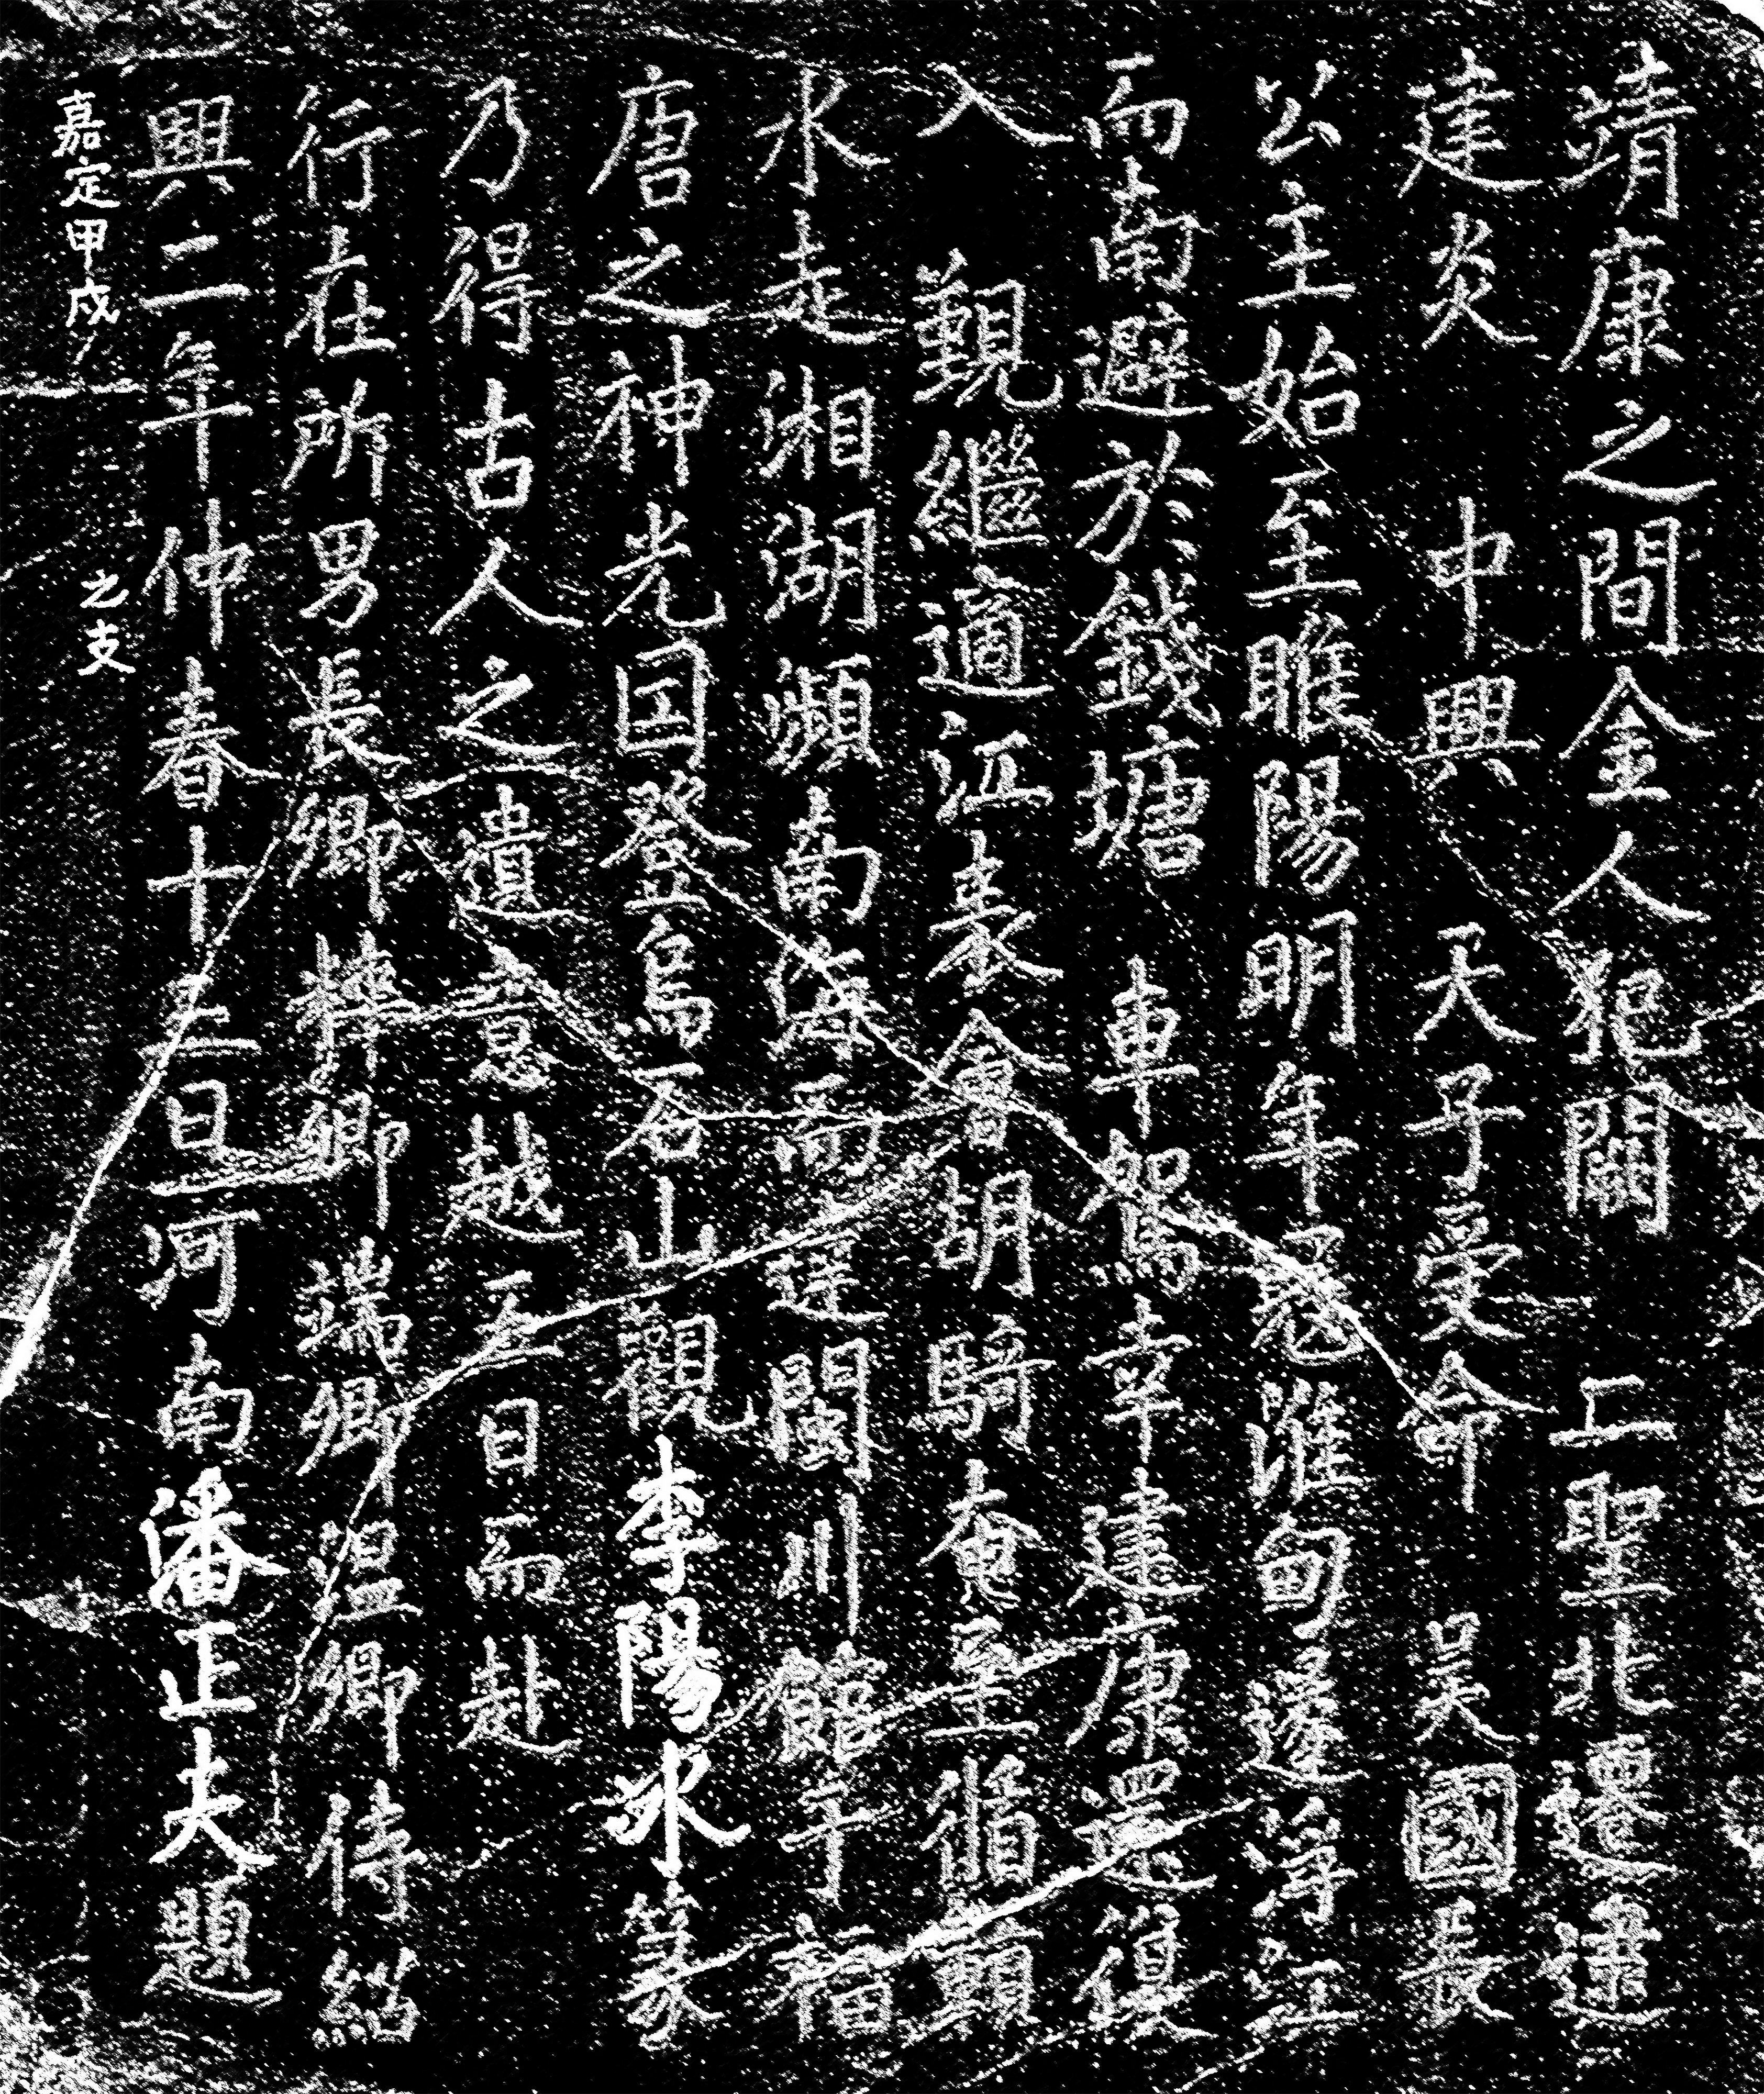 靖康之間金人犯闕二聖北遷逮
建炎中興天子受命吳國長
公主始至睢陽明年寇淮甸遂浮江
而南避於錢塘車駕幸建康還復
入覲繼適江表會胡騎奄至循贛
水走湘湖瀕南海而達閩川館于福
唐之神光国登烏石山觀李陽冰篆
乃得古人之遺意越五日而赴
行在所男長卿粹卿端卿溫卿侍紹
興二年仲春十五日河南潘正夫題
嘉定甲戌
之支